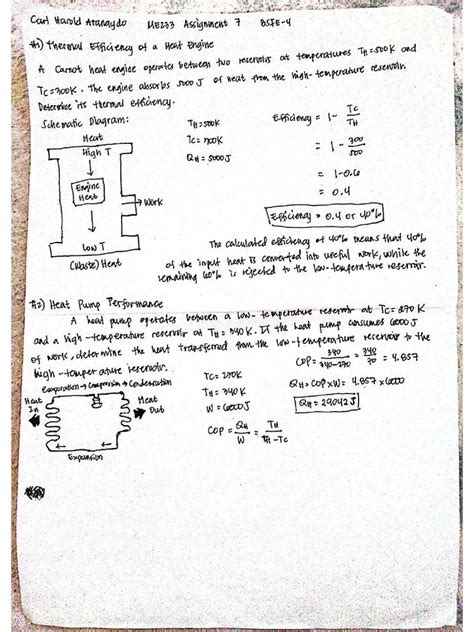 Carl Harold Atanaydo ME233 Assignment 7 BSFE-4
#1) Thermal Efficiency of a Heat Engine
A Carnot heat engine operates between two reservoirs at temperatures TH=500K and
TC=300K. The engine absorbs 5000 J of heat from the high-temperature reservoir.
Determine its thermal efficiency.
Schematic Diagram:
Heat
High T
Engine
Heat
Work
Low T
(Waste) Heat
TH=500K
TC=300K
QH=5000J
Efficiency = 1 - TC/TH
= 1 - 300/500
= 1-0.6
= 0.4
Efficiency = 0.4 or 40%
The calculated efficiency of 40% means that 40%
of the input heat is converted into useful work, while the
remaining 60% is rejected to the low-temperature reservoir.
#2) Heat Pump Performance
A heat pump operates between a low-temperature reservoir at TC=270K
and a high-temperature reservoir at TH=340K. If the heat pump consumes 6000J
of work, determine the heat transferred from the low-temperature reservoir to the
high-temperature reservoir.
Evaporation→Compression→Condensation
Heat
In
Heat
Out
Expansion
TC=270K
TH=340K
W=6000J
COP = QH/W = TH/TH-TC
COP = 340/340-270 = 340/70 = 4.857
QH=COP×W= 4.857×6000
QH=29042J